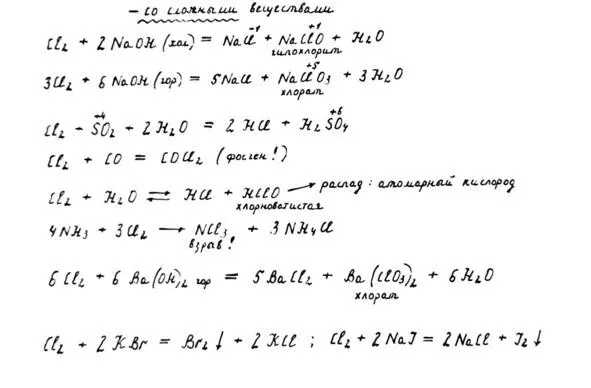 – со сложными веществами
Cl₂ + 2 NaOH (хол) = NaCl⁻¹ + NaCl⁺¹O + H₂O
гипохлорит
3Cl₂ + 6 NaOH (гор) = 5 NaCl + NaCl⁺⁵O₃ + 3 H₂O
хлорат
Cl₂ + S⁺⁴O₂ + 2 H₂O = 2 HCl + H₂S⁺⁶O₄
Cl₂ + CO = COCl₂ (фосген!)
Cl₂ + H₂O ⇄ HCl + HClO → распад: атомарный кислород
хлорноватистая
4NH₃ + 3Cl₂ → NCl₃ + 3 NH₄Cl
взрыв!
6Cl₂ + 6 Ba(OH)₂ гор = 5 BaCl₂ + Ba(ClO₃)₂ + 6 H₂O
хлорат
Cl₂ + 2 KBr = Br₂↓ + 2 KCl ; Cl₂ + 2 NaI = 2 NaCl + I₂↓